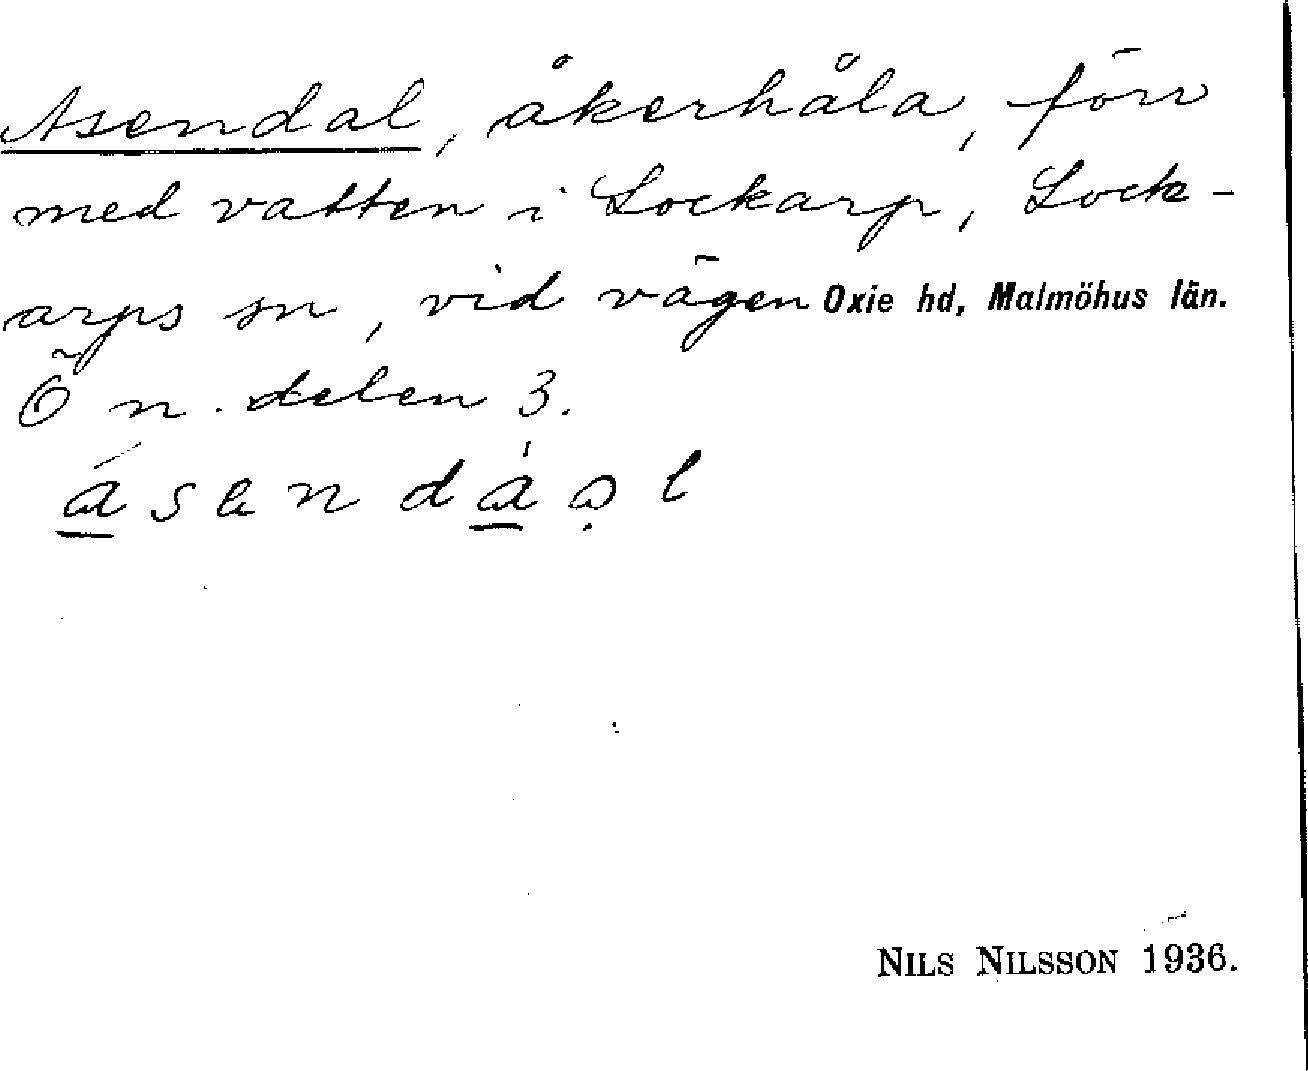 Asendal, åkerhåla, förr
med vatten i Lockarp, Lock-
arps sn, vid vägen Oxie hd, Malmöhus län.
Ö n. delen 3.
NILS NILSSON 1936.